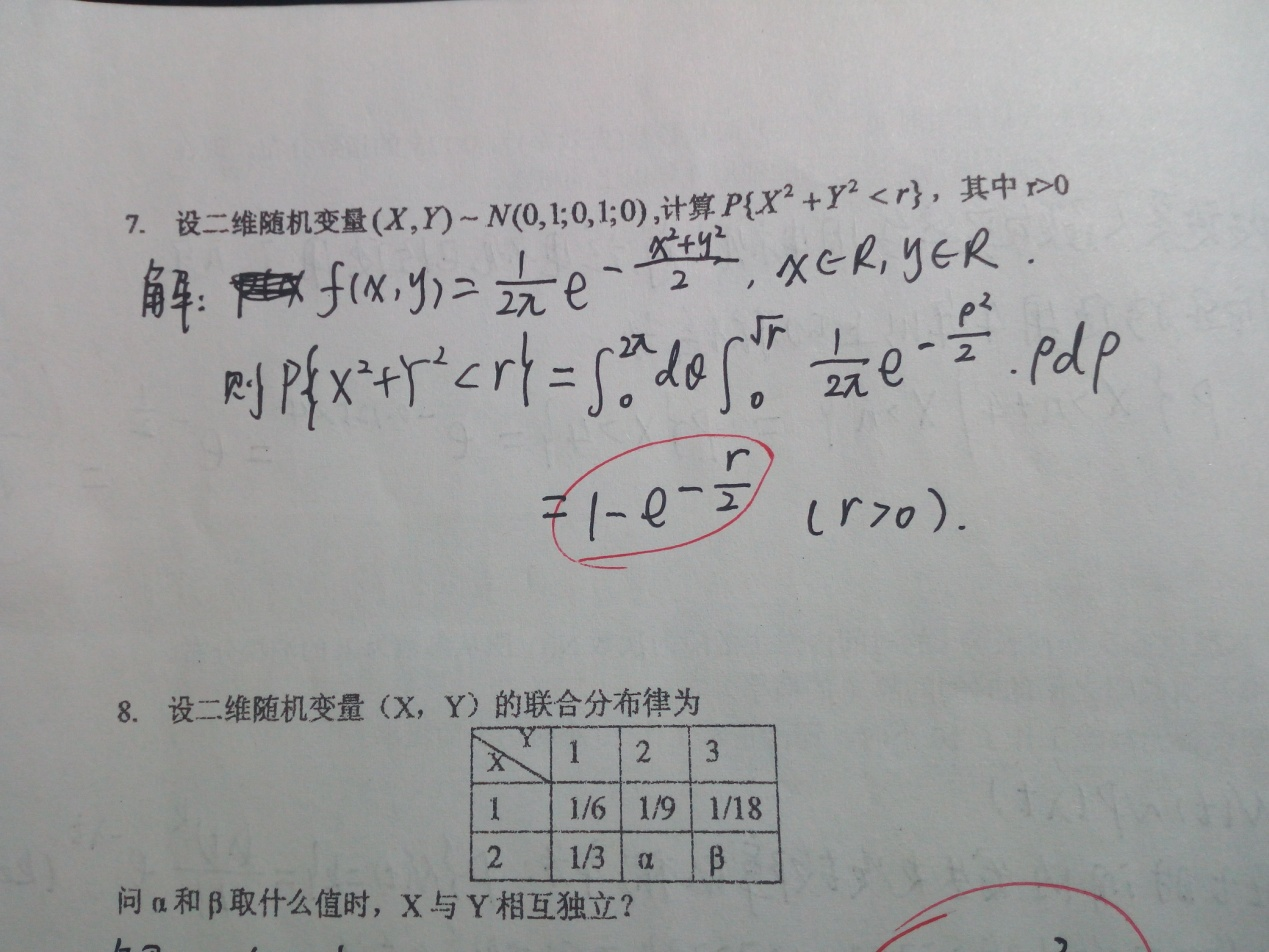 7. 设二维随机变量(X,Y)~N(0,1;0,1;0),计算P{X²+Y²<r}，其中r>0
解: f(x,y)=1/2π e^(-(x²+y²)/2), x∈R, y∈R.
则P{X²+Y²<r}=∫₀^(2π)dθ∫₀^(√r) 1/2π e^(-ρ²/2)·ρdρ
=1-e^(-r/2) (r>0).
8. 设二维随机变量（X，Y）的联合分布律为
X Y 1 2 3
1 1/6 1/9 1/18
2 1/3 α β
问α和β取什么值时，X与Y相互独立？